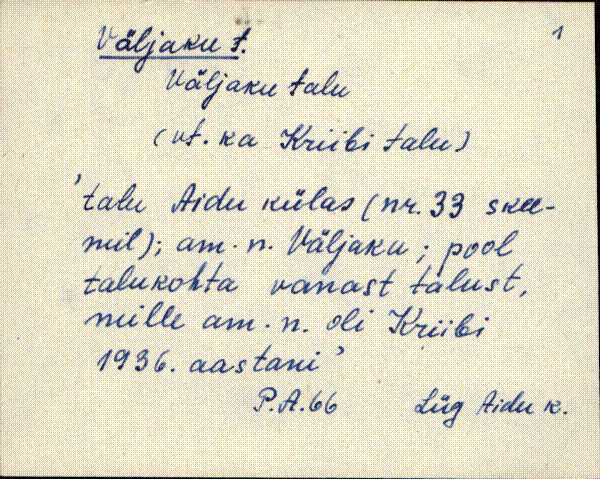 1
Väljaku t.
Väljaku talu
(vt. ka Kriibi talu)
'talu Aidu külas (nr. 33 skee-
mil); am. n. Väljaku; pool
talukohta vanast talust,
mille am. n. oli Kriibi
1936. aastani'
P.A. 66 Lüg Aidu k.